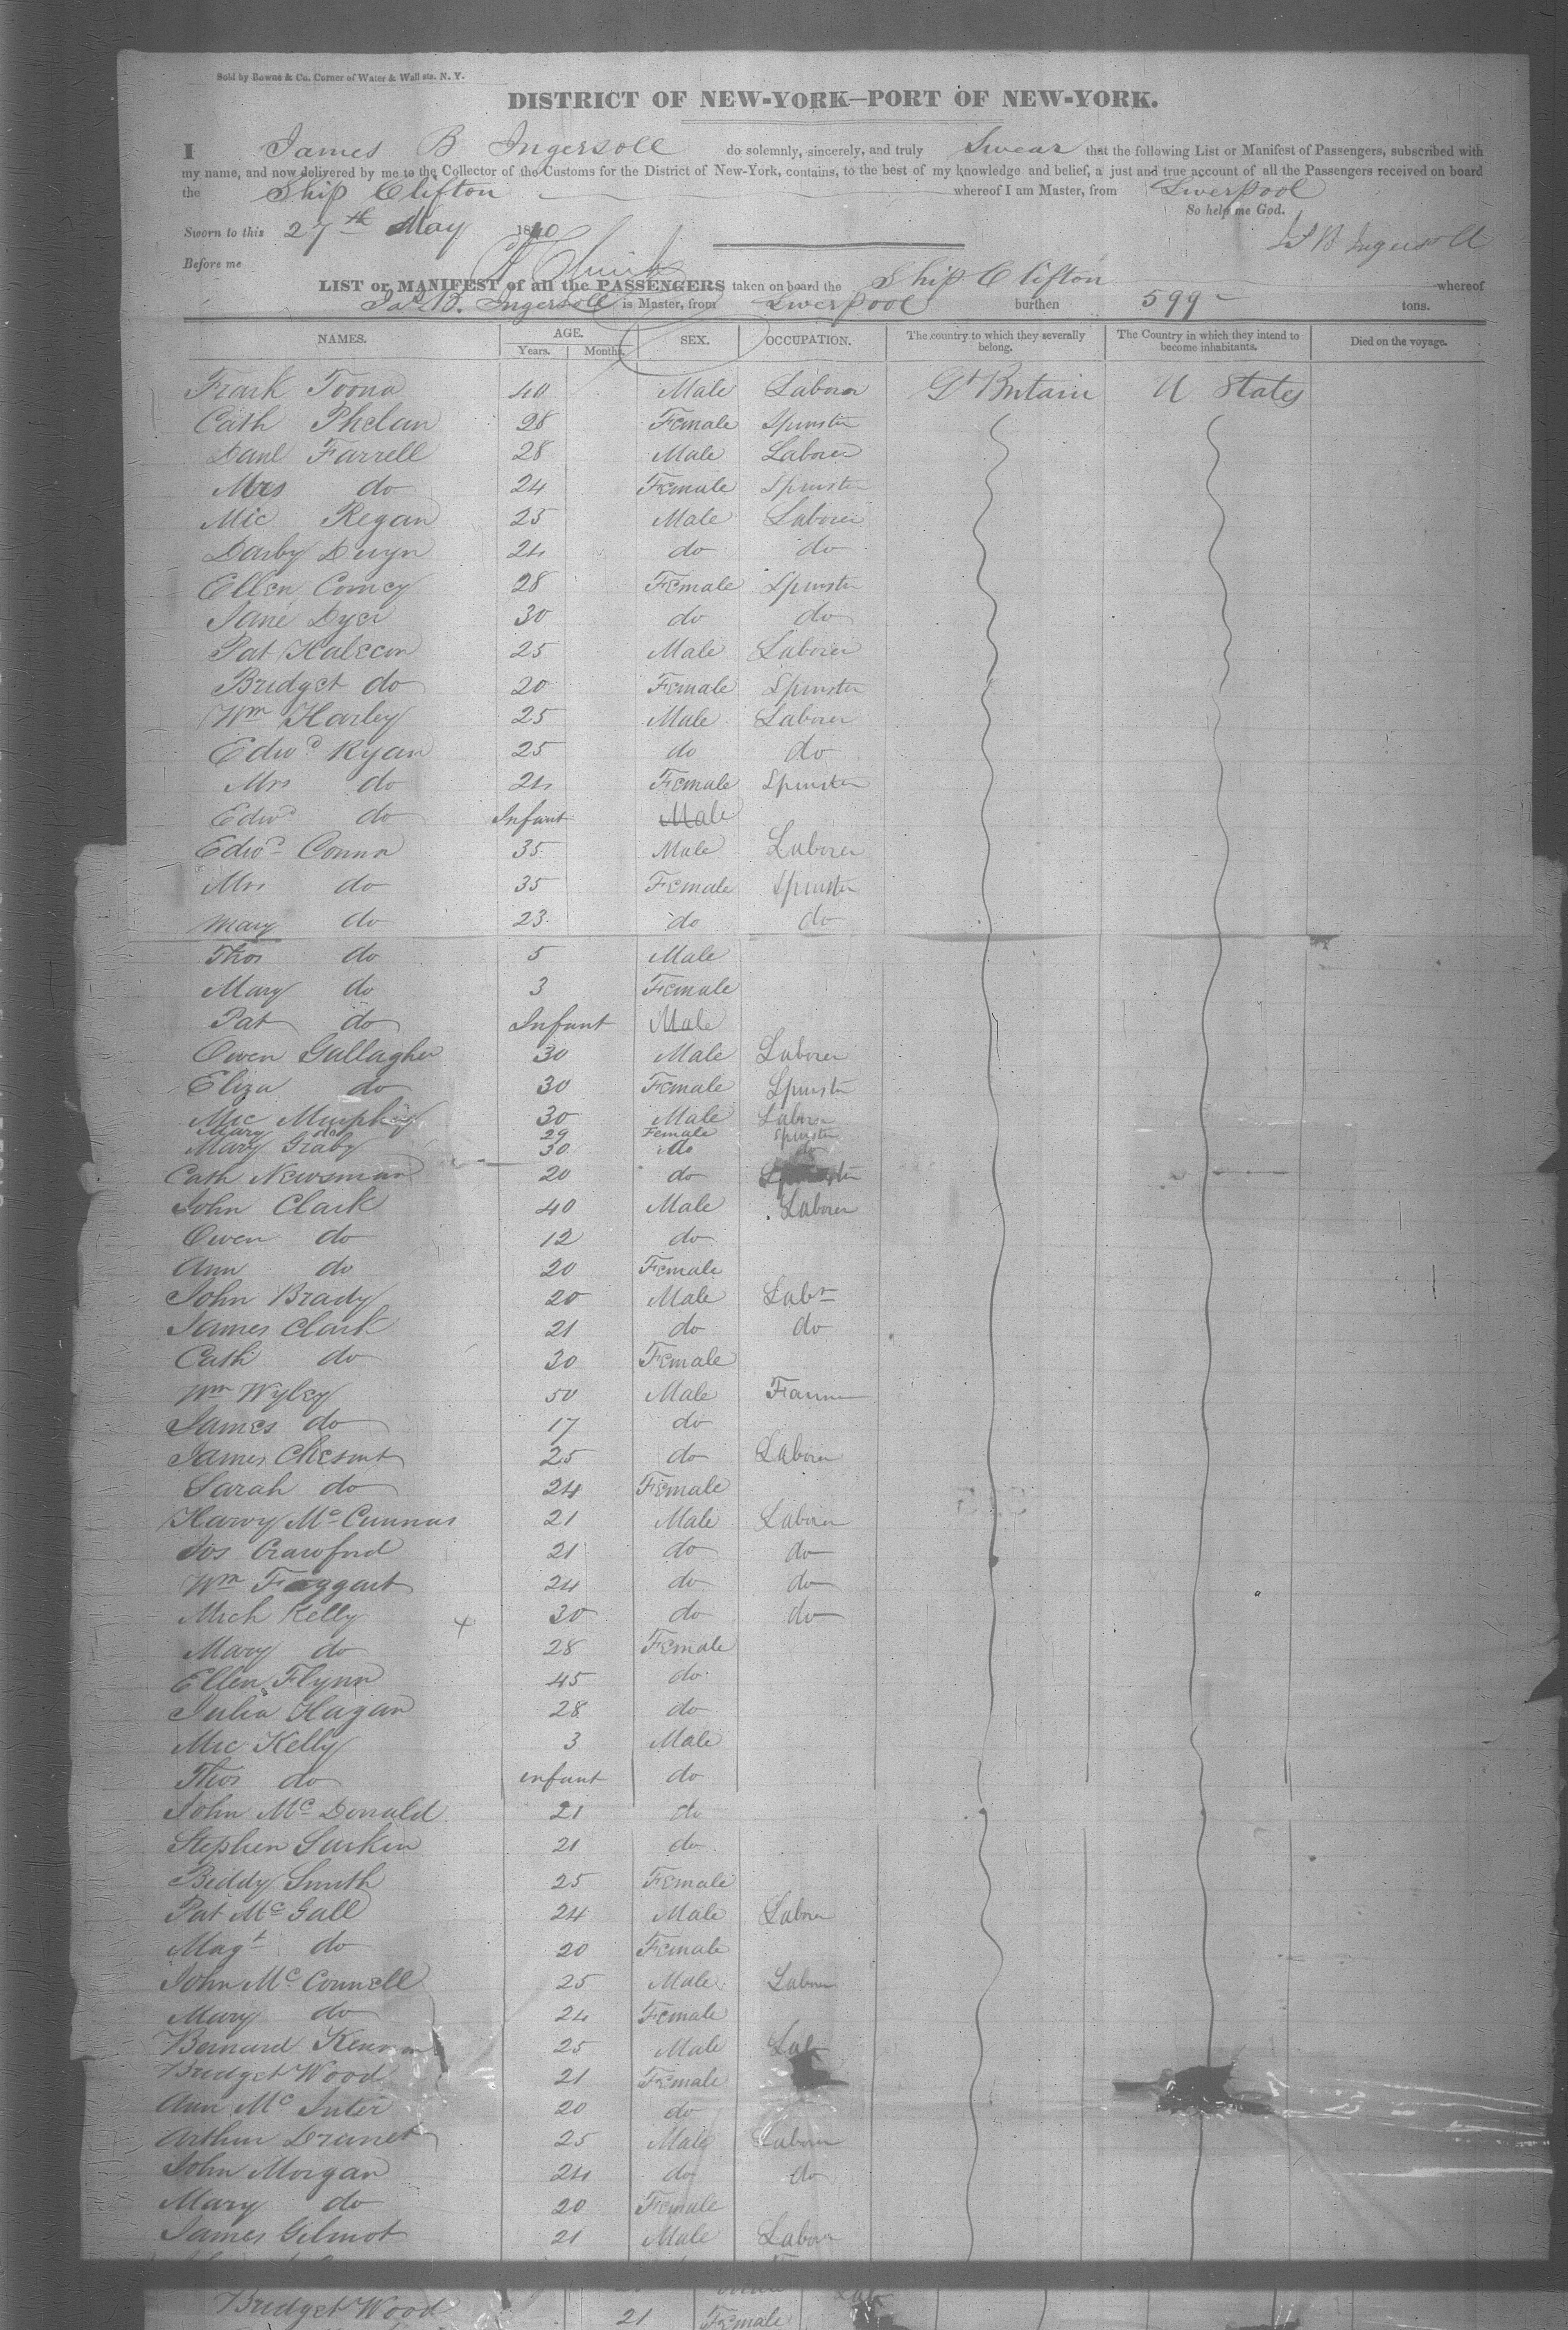 Sold by Bowne & Co. Corner of Water & Wall sts. N. Y.
DISTRICT OF NEW-YORK—PORT OF NEW-YORK.
I James B Ingersoll do solemnly, sincerely, and truly Swear that the following List or Manifest of Passengers, subscribed with
my name, and now delivered by me to the Collector of the Customs for the District of New-York, contains, to the best of my knowledge and belief, a just and true account of all the Passengers received on board
the Ship Clifton whereof I am Master, from Liverpool
So help me God.
Sworn to this 27th May 1840 Js B Ingersoll
Before me
LIST or MANIFEST of all the PASSENGERS taken on board the Ship Clifton whereof
Jas B. Ingersoll is Master, from Liverpool burthen 599 tons.
NAMES. AGE. Years. Months. SEX. OCCUPATION. The country to which they severally belong. The Country in which they intend to become inhabitants. Died on the voyage.
Frank 40 Male Laborer Gt Britain U States
Cath Phelan 28 Female Spinster
Danl Farrell 28 Male Laborer
Mrs do 24 Female Spinster
Mic Regan 25 Male Laborer
Darby 24 do do
Ellen 28 Female Spinster
Jane Dyer 30 do do
Pat 25 Male Laborer
Bridget do 20 Female Spinster
Wm Harley 25 Male Laborer
Edwd Ryan 25 do do
Mrs do 24 Female Spinster
Edwd do Infant Male
Edwd Connor 35 Male Laborer
Mrs do 35 Female Spinster
Mary do 23 do do
Thos do 5 Male
Mary do 3 Female
Pat do Infant Male
Owen Gallagher 30 Male Laborer
Eliza do 30 Female Spinster
Mic Murphy 30 Male Laborer
Mary do 29 Female Spinster
Mary Graby 30 do
Cath Newsman 20 do Spinster
John Clark 40 Male Laborer
Owen do 12 do
Ann do 20 Female
John Brady 20 Male Labr
James Clark 21 do do
Cath do 30 Female
Wm Wyley 50 Male Farmer
James do 17 do
James Chesnut 25 do Laborer
Sarah do 24 Female
Harvy 21 Male Laborer
Jos Crawford 21 do do
Wm Faggart 24 do do
Mich Kelly + 30 do do
Mary do 28 Female
Ellen Flynn 45 do
Julia Hagan 28 do
Mic Kelly 3 Male
Thos do infant do
John McDonald 21 do
Stephen 21 do
Biddy Smith 25 Female
Pat McGall 24 Male Laborer
Magt do 20 Female
John McConnell 25 Male Laborer
Mary do 24 Female
Bernard 25 Male Lab
Bridget Wood 21 Female
Ann Mc 20 do
Arthur 25 Male Laborer
John Morgan 24 do do
Mary do 20 Female
James Gilmot 21 Male Laborer
Bridget Wood 21 Female